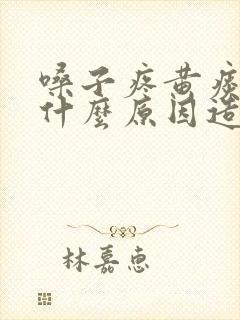 嗓子疼黄痰
什麼原因造
林嘉惠